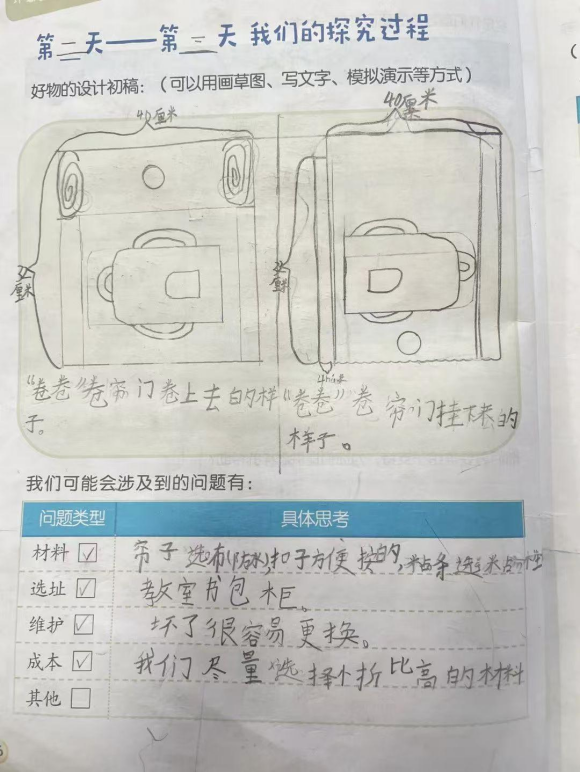 第二天——第三天 我们的探究过程
好物的设计初稿：（可以用画草图、写文字、模拟演示等方式）
40厘米
40厘米
厘米
厘米
“卷卷”卷帘门卷上去的样
子。
“卷卷”卷帘门挂下来的
样子。
我们可能会涉及到的问题有：
问题类型 具体思考
材料 帘子选布(防水),扣子方便按的,粘条选
选址 教室书包柜。
维护 坏了很容易更换。
成本 我们尽量选择个折比高的材料
其他